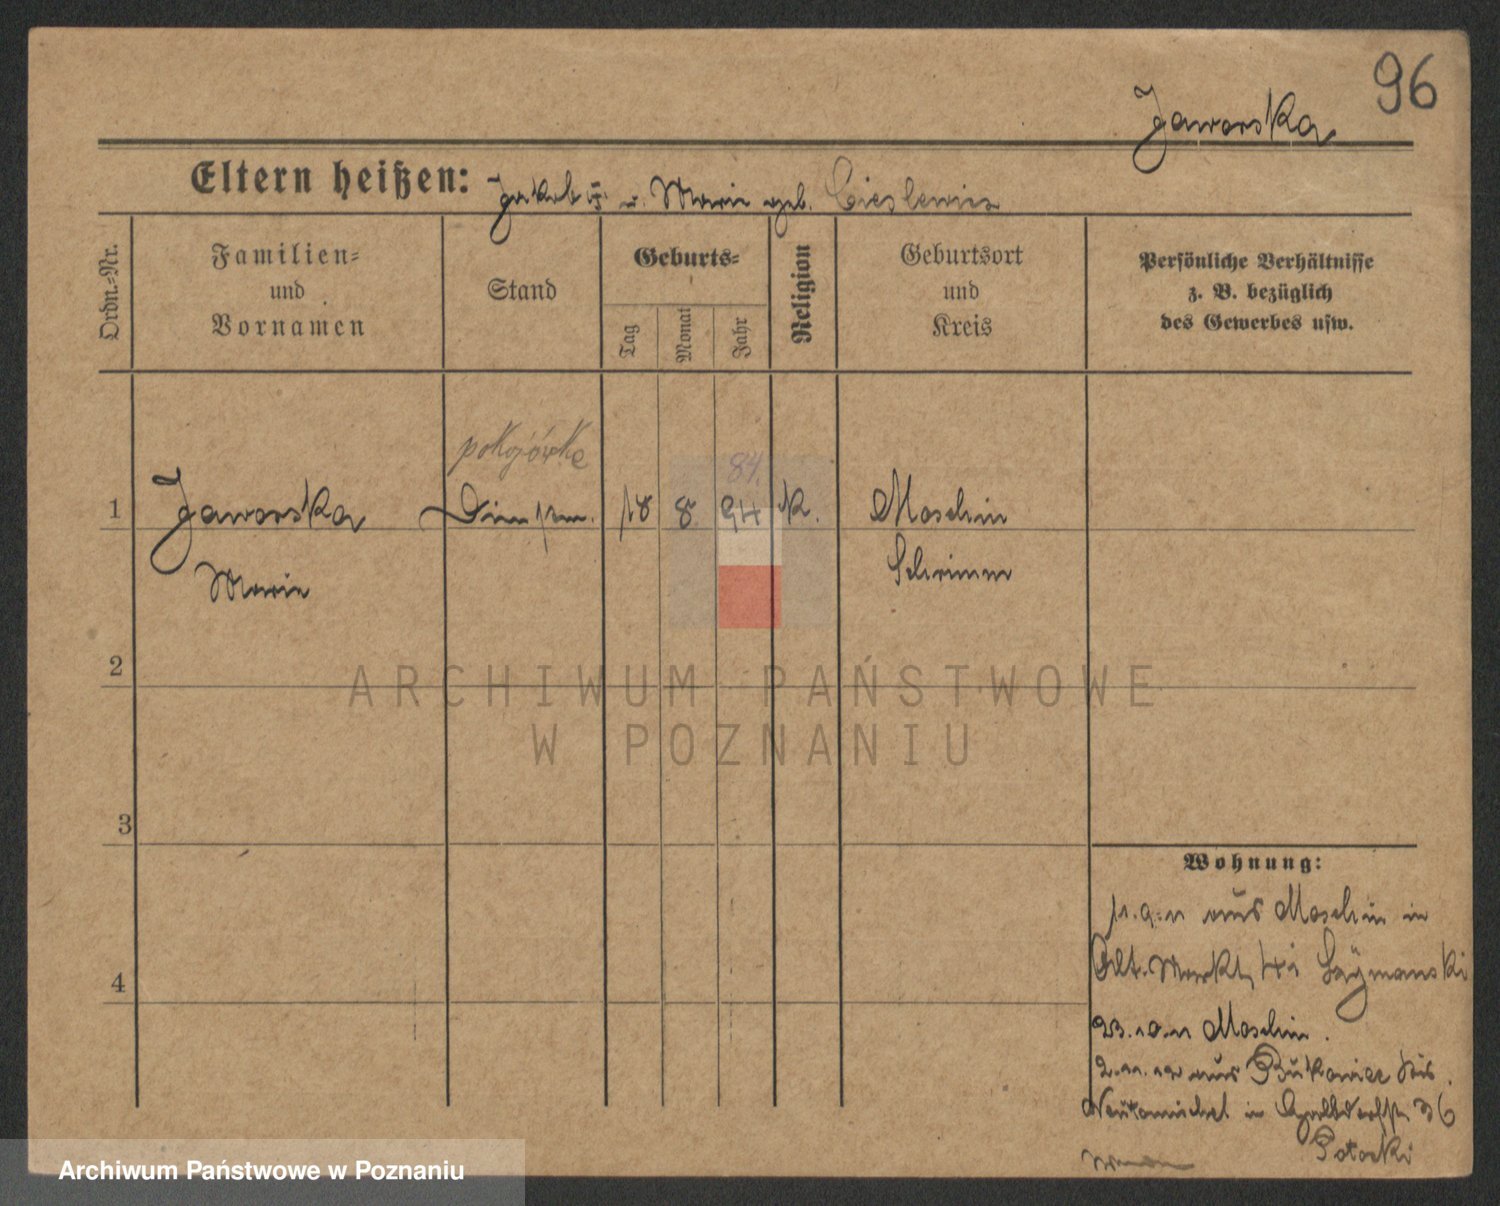 96
Jaworska
Eltern heißen: Jakob u. Marie geb. Cieslewicz
Ordn.-Nr.
Familien-
und
Vornamen
Stand
Geburts-
Tag
Monat
Jahr
Religion
Geburtsort
und
Kreis
Persönliche Verhältnisse
z. B. bezüglich
des Gewerbes usw.
pokojówka
84.
1 Jaworska 18 8 94 K. Moschin
Marie Schrimm
2
3
4
ARCHIWUM PAŃSTWOWE
W POZNANIU
Wohnung:
11.9.11 aus Moschin in
Alt. Markt 41 Szymanski
23.10.11 Moschin.
2.11.12 aus Bukowiec Krs.
Neutomischel in 36
Potocki
Archiwum Państwowe w Poznaniu